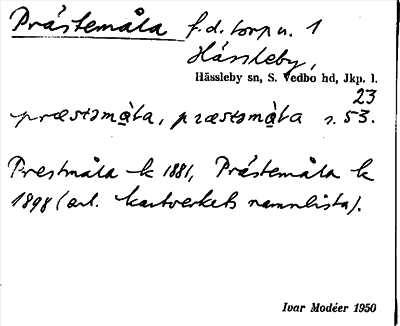 Prästemåla f.d. torp u. 1
Hässleby,
Hässleby sn, S. Vedbo hd, Jkp. l.
23
præstəmåla, præstəmåla s. 53.
Prestmåla k 1881, Prästemåla k
1898 (enl. kartverkets namnlista).
Ivar Modéer 1950